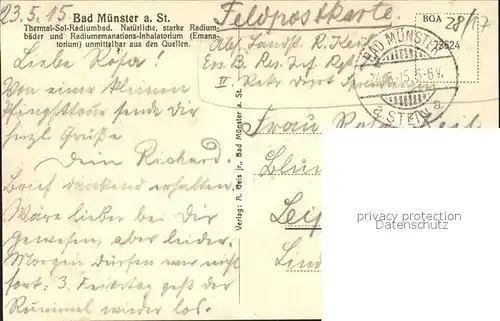 23.5.15.
Bad Münster a. St.
Thermal-Sol-Radiumbad. Natürliche, starke Radium-
bäder und Radiumemanations-Inhalatorium (Emana-
torium) unmittelbar aus den Quellen.
Liebe Rosa!
Von einer kleinen
Pfingsttour sende dir
herzl. Grüße
Dein Richard.
Brief dankend erhalten.
Wäre lieber bei dir
gewesen, aber leider.
Morgen dürfen wir nicht
fort. 3. Feiertag geht der
Rummel wieder los.
Verlag: A. Geis jr., Bad Münster a. St.
Feldpostkarte
Abs. Landst. R.
Ers. B. Res. Inf.
II.
BAD MÜNSTER
5-6 V.
a. STEIN
BGA
28/17
73624
Frau
privacy protection
www.ansichtskarten-center.de